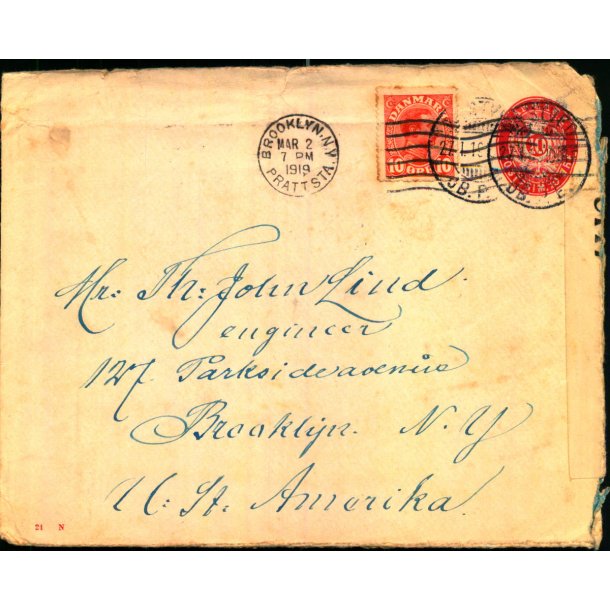 BROOKLYN, N.Y.
MAR 2
7 PM
1919
PRATT STA.
DANMARK
10 ØRE 10
Mr: Th: John Lind
engineer
127 Parksideavenüe
Brooklijn. N. Y
U: St: Amerika.
21 N